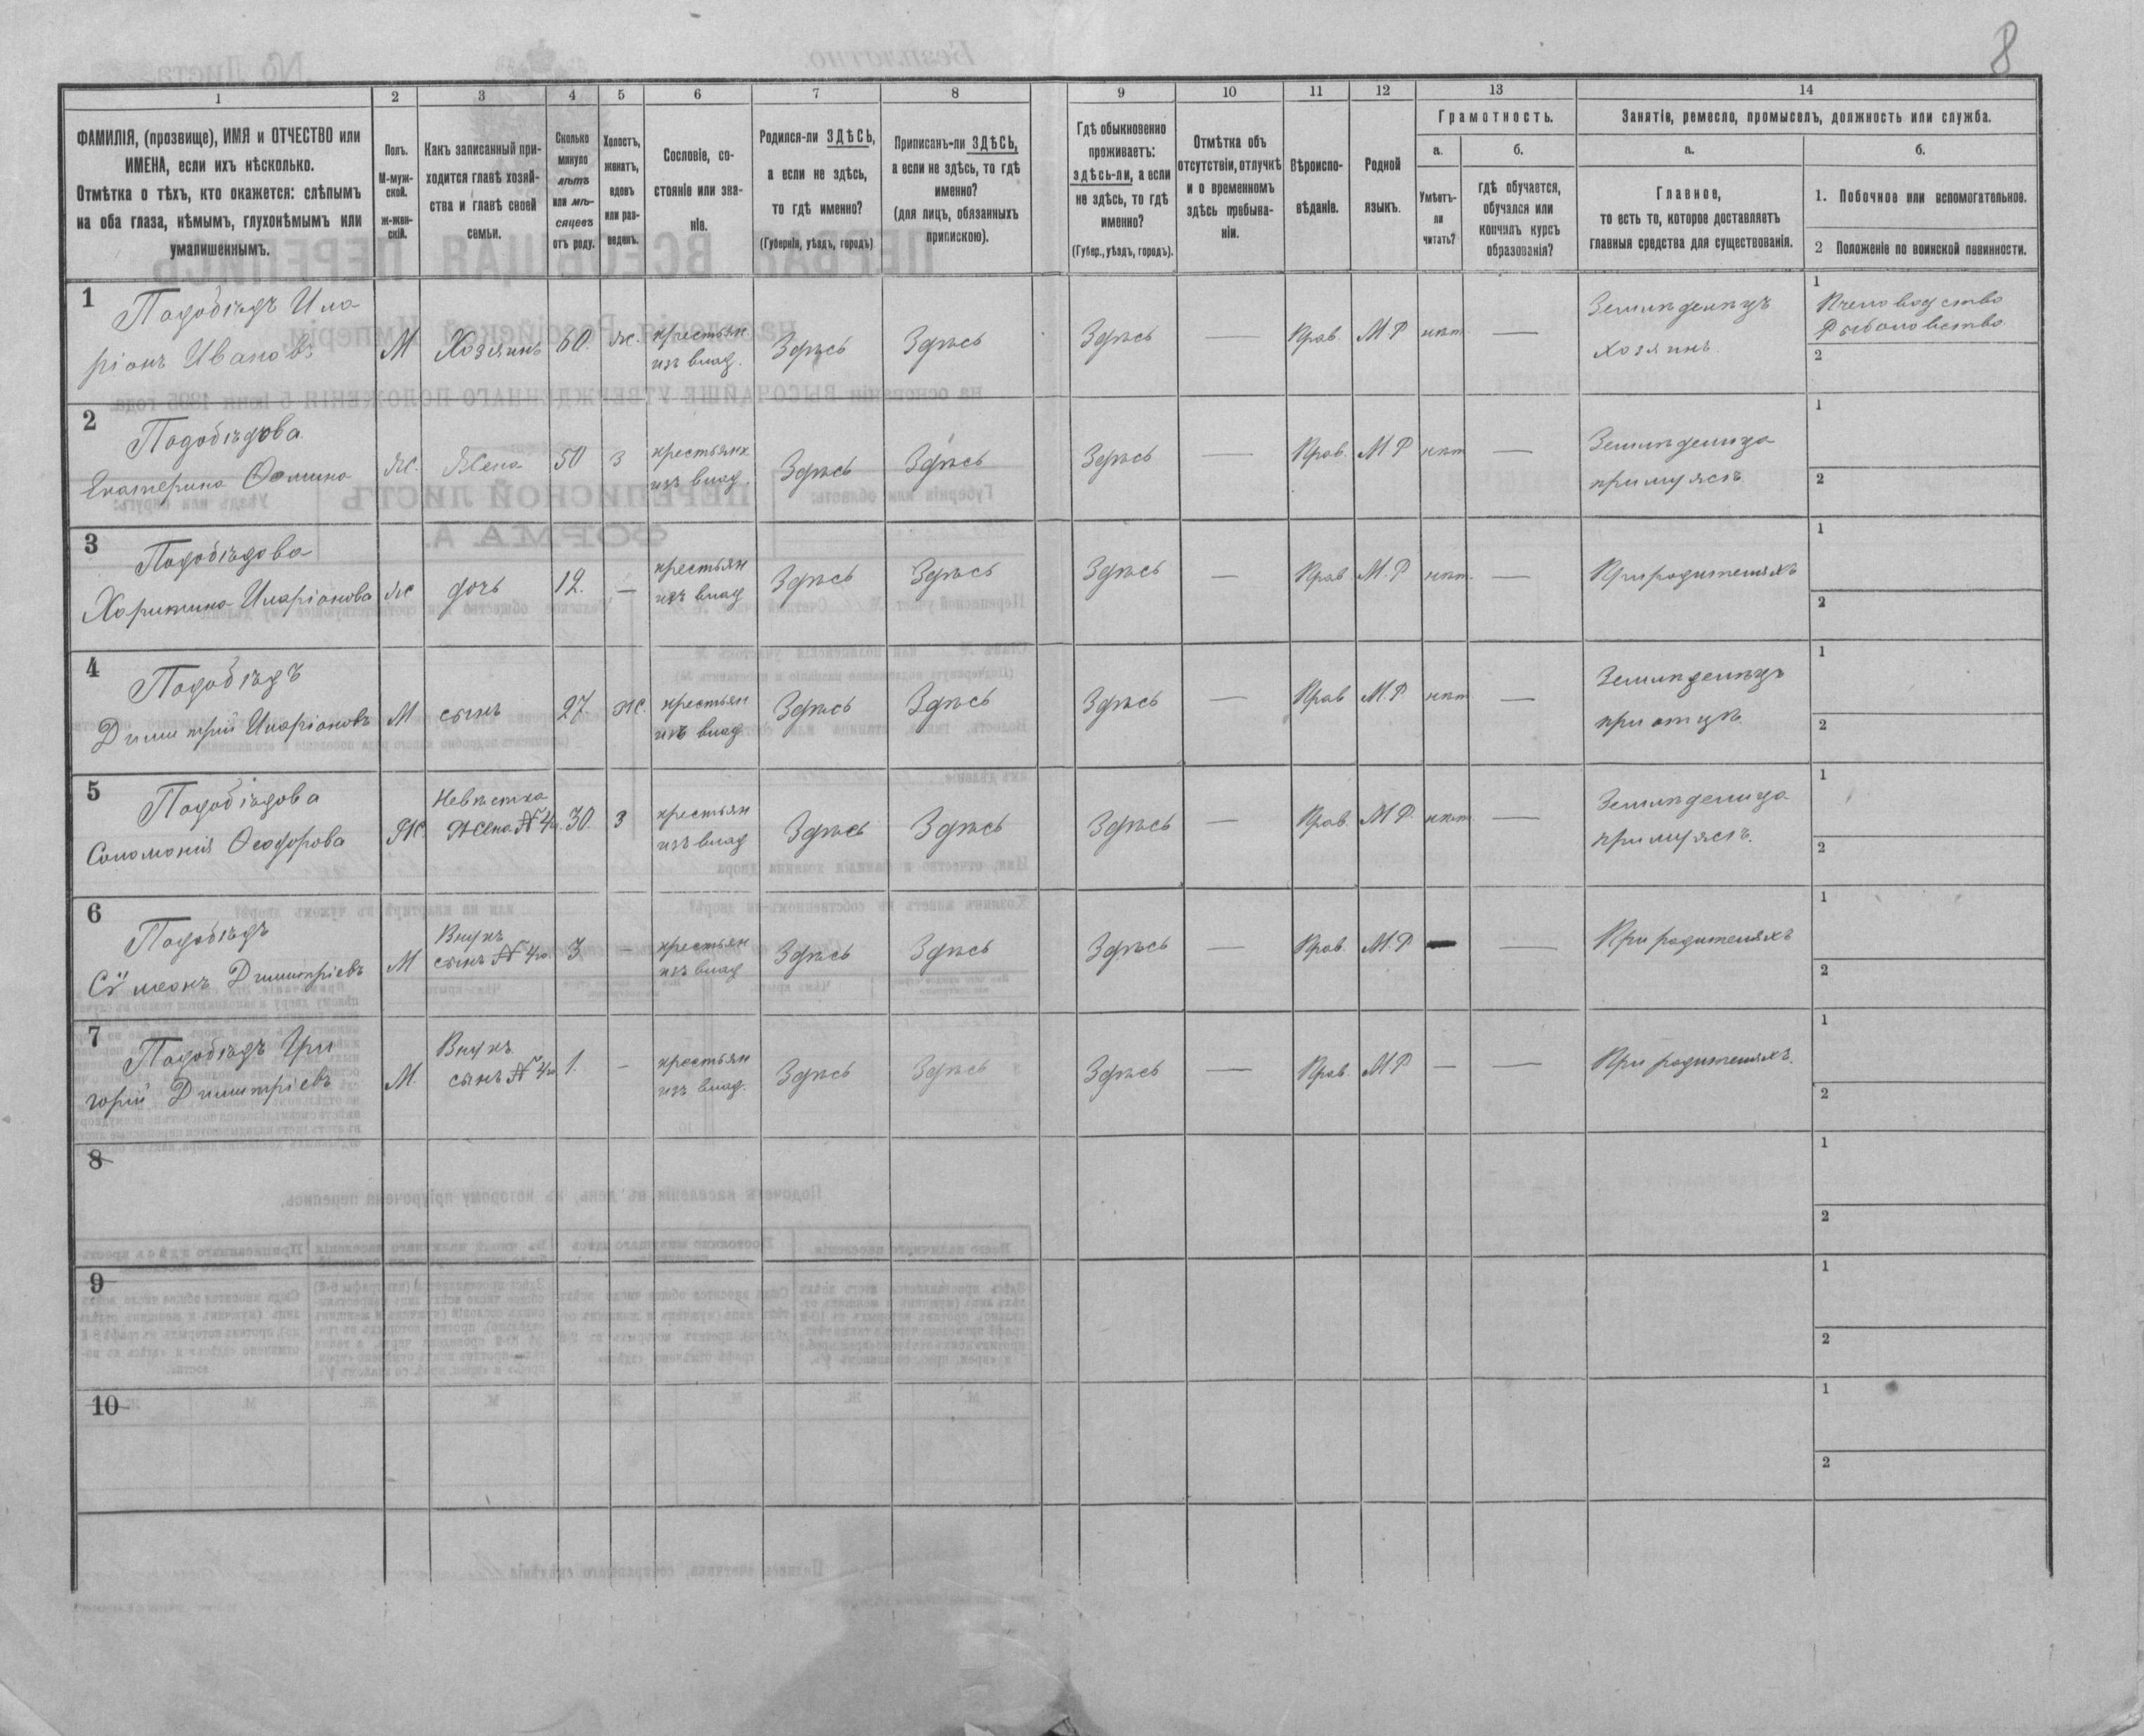 8
1 2 3 4 5 6 7 8 9 10 11 12 13 14
ФАМИЛІЯ, (прозвище), ИМЯ и ОТЧЕСТВО или
ИМЕНА, если ихъ нѣсколько.
Отмѣтка о тѣхъ, кто окажется: слѣпымъ
на оба глаза, нѣмымъ, глухонѣмымъ или
умалишеннымъ.
Полъ.
М-муж-
ской.
ж-жен-
скій.
Какъ записанный при-
ходится главѣ хозяй-
ства и главѣ своей
семьи.
Сколько
минуло
лѣтъ
или мѣ-
сяцевъ
отъ роду.
Холостъ,
женатъ,
вдовъ
или раз-
веденъ.
Сословіе, со-
стояніе или зва-
ніе.
Родился-ли ЗДѢСЬ,
а если не здѣсь,
то гдѣ именно?
(Губернія, уѣздъ, городъ)
Приписанъ-ли ЗДѢСЬ,
а если не здѣсь, то гдѣ
именно?
(для лицъ, обязанныхъ
припискою).
Гдѣ обыкновенно
проживаетъ:
здѣсь-ли, а если
не здѣсь, то гдѣ
именно?
(Губер., уѣздъ, городъ).
Отмѣтка объ
отсутствіи, отлучкѣ
и о временномъ
здѣсь пребыва-
ніи.
Вѣроиспо-
вѣданіе.
Родной
языкъ.
Грамотность.
а.
Умѣетъ-
ли
читать?
б.
гдѣ обучается,
обучался или
кончилъ курсъ
образованія?
Занятіе, ремесло, промыселъ, должность или служба.
а.
Главное,
то есть то, которое доставляетъ
главныя средства для существованія.
б.
1. Побочное или вспомогательное.
2 Положеніе по воинской повинности.
1
Подобѣдъ Ила-
ріонъ Ивановъ
М
Хозяинъ
60.
ж.
крестьян
изъ влад.
Здѣсь
Здѣсь
Здѣсь
—
Прав.
М Р
нѣт
—
Земледѣлецъ
хозяинъ.
1
Пчеловодство
Рыболовство.
2
2
Подобѣдова
Екатерина Ѳомина
Ж.
Жена
50
З
крестьянк
изъ влад.
Здѣсь
Здѣсь
Здѣсь
—
Прав.
М.Р
нѣт
—
Земледѣлица
при мужѣ
1
2
3
Подобѣдова
Харитина Иларіонова
Ж
дочь
12.
—
крестьян
изъ влад
Здѣсь
Здѣсь
Здѣсь
—
Прав
М.Р
нѣт.
—
При родителяхъ
1
2
4
Подобѣдъ
Димитрій Иларіоновъ
М
сынъ
27.
ж.
крестьян
изъ влад
Здѣсь
Здѣсь
Здѣсь
—
Прав
М.Р.
нѣт
—
Земледѣлецъ
при отцѣ.
1
2
5
Подобѣдова
Соломонія Ѳеодорова
Ж.
Невѣстка
Жена №4го.
30.
З
крестьян
изъ влад
Здѣсь
Здѣсь
Здѣсь
—
Прав.
М Р.
нѣт
—
Земледѣлица
при мужѣ.
1
2
6
Подобѣдъ
Сѵмеонъ Димитріевъ
М
Внукъ
сынъ №4го.
3
—
крестьян
изъ влад
Здѣсь
Здѣсь
Здѣсь
—
Прав.
М.Р
—
—
При родителяхъ
1
2
7
Подобѣдъ Гри
горій Димитріевъ
М.
Внукъ
сынъ №4го
1.
-
крестьян
изъ влад.
Здѣсь
Здѣсь
Здѣсь
—
Прав.
М Р
—
—
При родителяхъ.
1
2
8
1
2
9
1
2
10
1
2